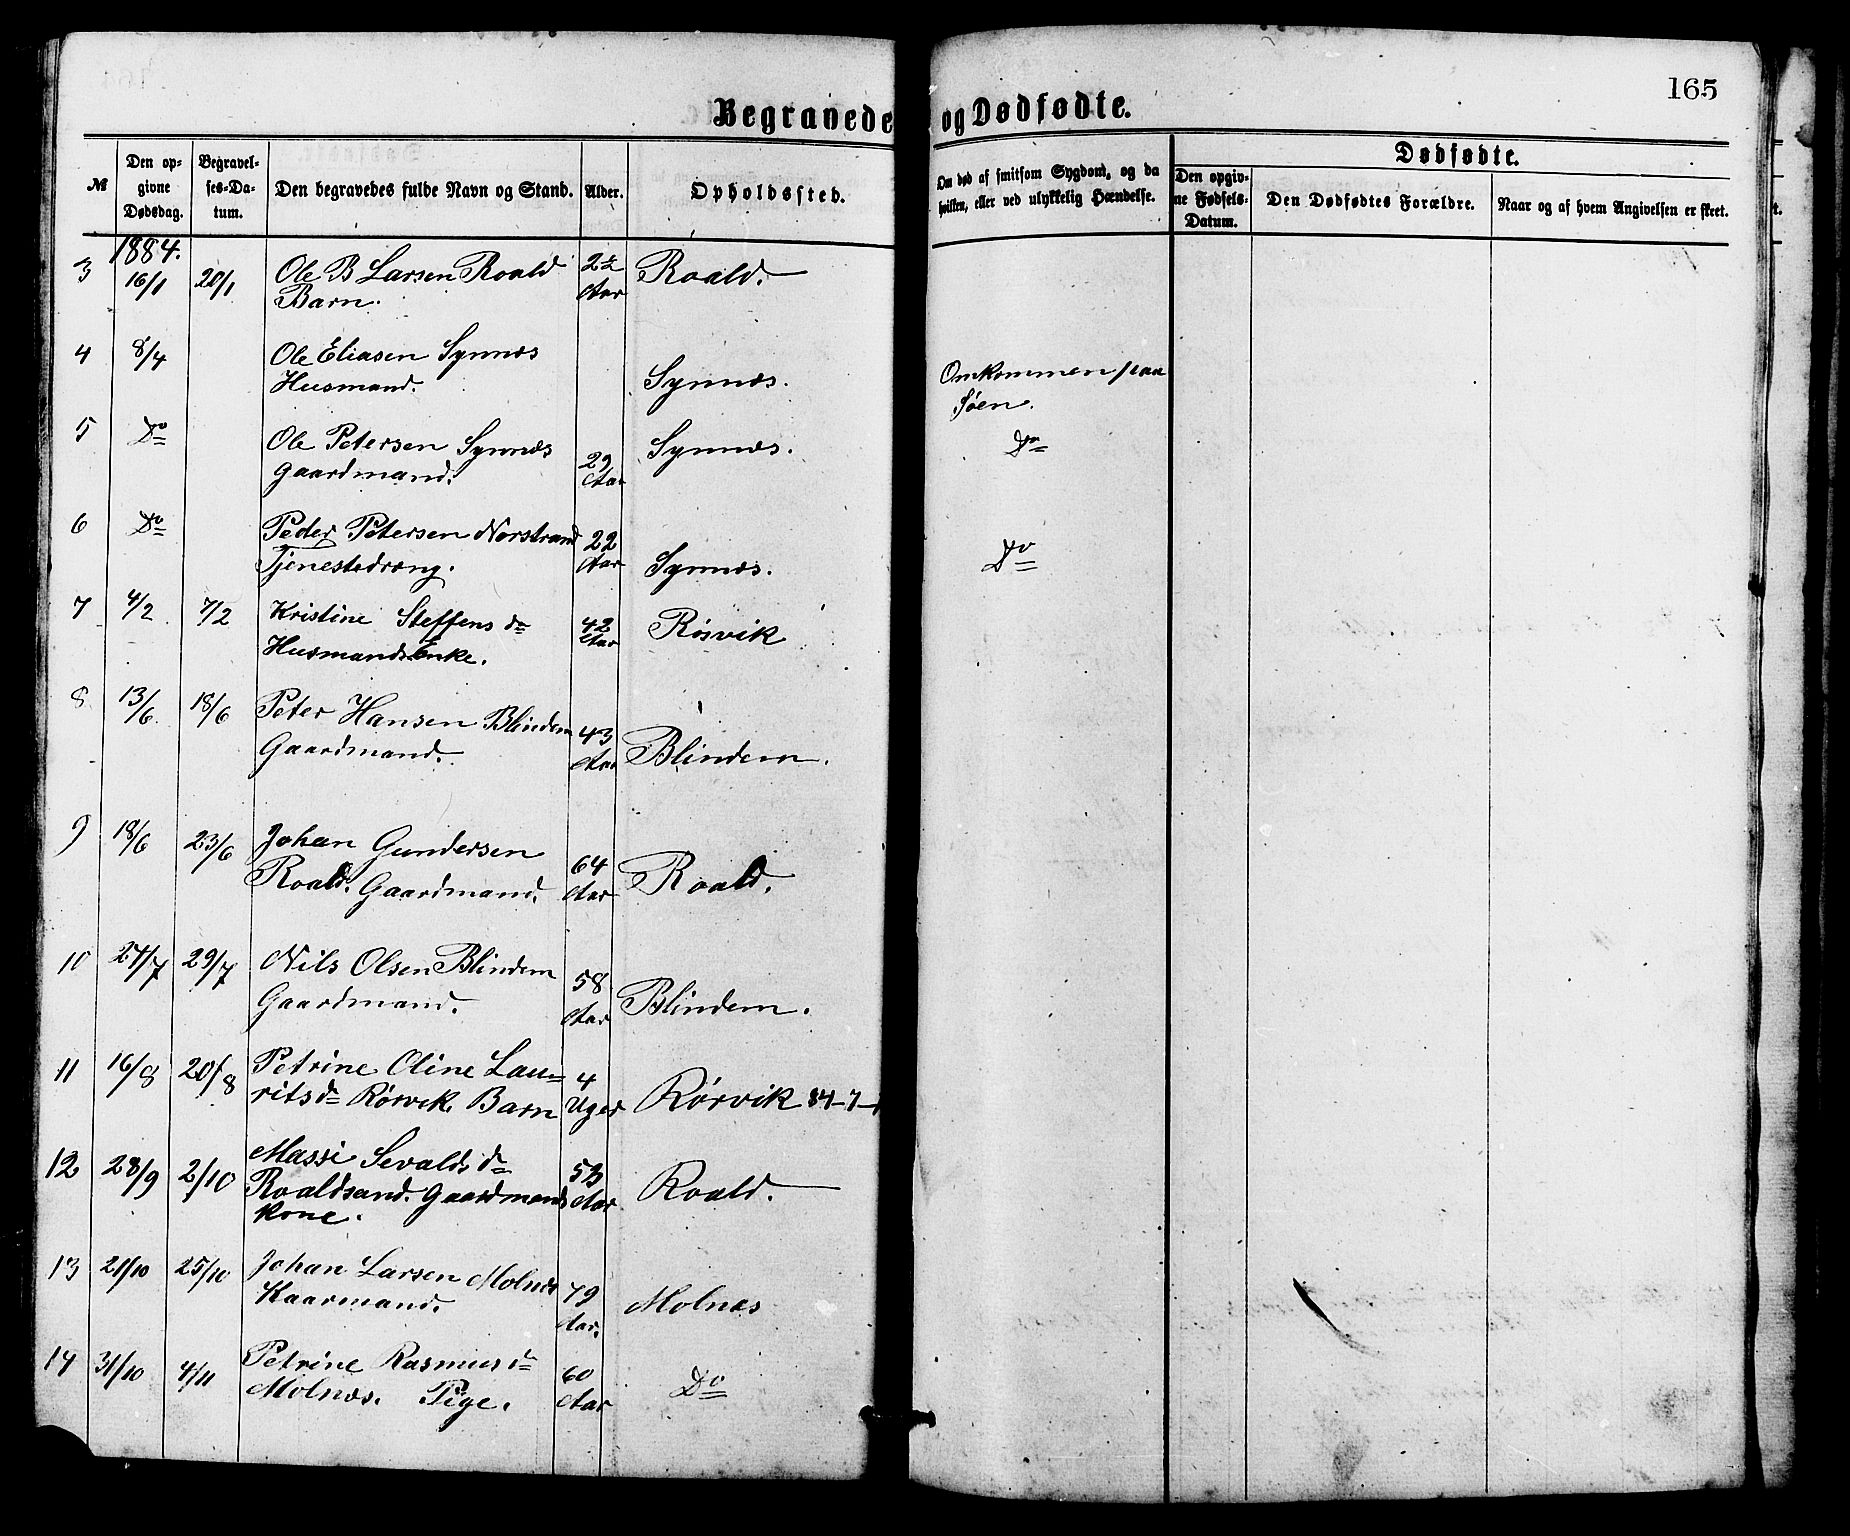 165
Begravede og Dødfødte.
№
Den op-
givne
Dødsdag.
Begravel-
ses-Da-
tum.
Den begravedes fulde Navn og Stand.
Alder.
Opholdssted.
Om død af smitsom Sygdom, og da
hvilken, eller ved ulykkelig Hændelse.
Dødfødte.
Den opgiv-
ne Fødsels-
Datum.
Den Dødfødtes Forældre.
Naar og af hvem Angivelsen er skeet.
1884.
3 16/1 20/1 Ole B Larsen Roald 2½ Roald.
Barn. Aar
4 8/4 Ole Eliasen Synnæs
Husmand. Synnæs. Omkommen paa
Søen.
5 Do Ole Petersen Synnæs Synnæs. Do
Gaardmand. 29 Aar
6 Do Peder Petersen Norstrand 22
Tjenestedreng. Aar Synnæs. Do
7 4/2 7/2 Kristine Steffensdr 42 Røsvik
Husmands Enke. Aar
8 13/6 18/6 Peter Hansen Blindem 43
Gaardmand. Aar Blindem.
9 18/6 23/6 Johan Gundersen 64
Roald. Gaardmand. Aar Roald.
10 24/7 29/7 Nils Olsen Blindem 58
Gaardmand. Aar Blindem.
11 16/8 20/8 Petrine Oline Lau= 4
ritsdr Rørvik. Barn Uger Rørvik 84-7-
12 28/9 2/10 Massi Sevaldsdr 53 Roald.
Roaldsand. Gaardmands Aar
Kone.
13 21/10 25/10 Johan Larsen Molnæs 79 Molnæs
Kaarmand. Aar.
14 31/10 4/11 Petrine Rasmusdr 60 Do
Molnæs. Pige. Aar